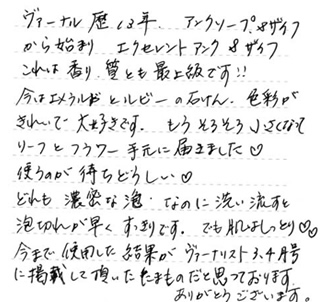 ヴァーナル歴13年、アンクソープ、&ザイフ
から始まり エクセレントアンク&ザイフ
これは香り、質とも最上級です!!
今はエメラルドとルビーの石けん。色彩が
きれいで大好きです。もうそろそろ小さくなって
リーフとフラワー手元に届きました♡
使うのが待ちどうしい♡
どれも濃密な泡、なのに洗い流すと
泡切れが早くすっきりです。でも肌はしっとり♡
今まで使用した結果がヴァーナリスト3、4月号
に掲載して頂いたたまものだと思っております。
ありがとうございます。